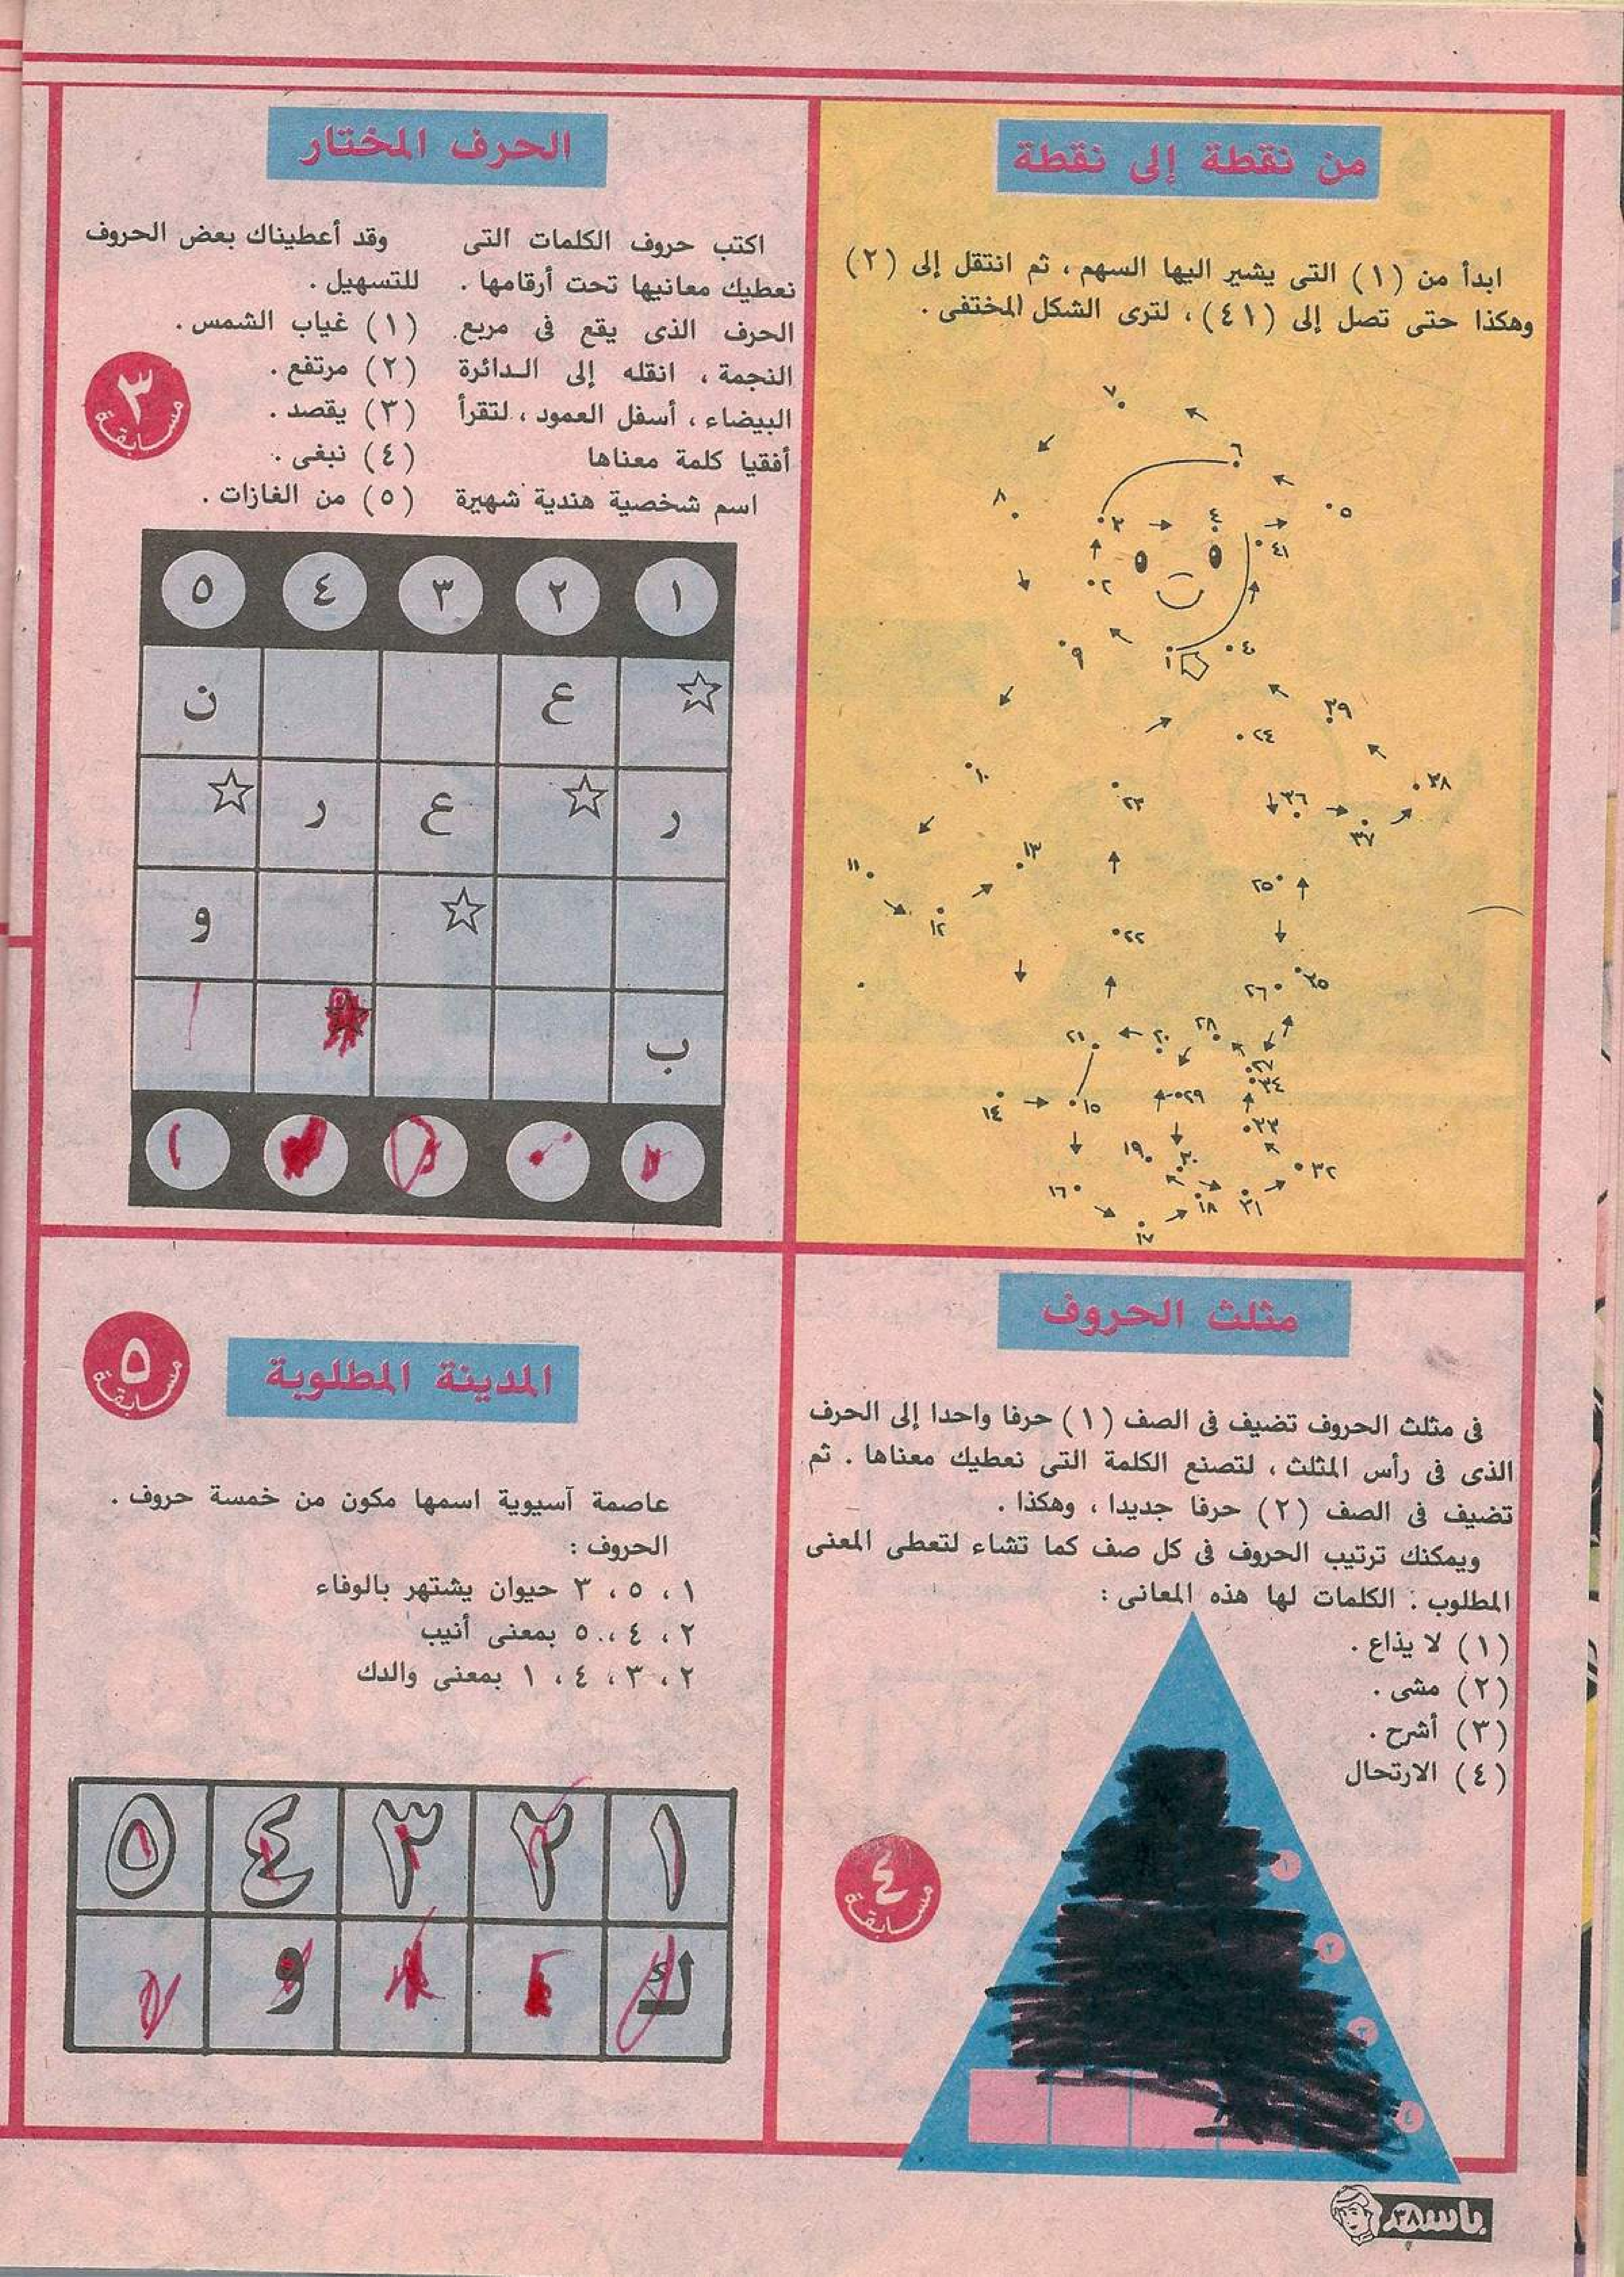 من نقطة إلى نقطة
ابدأ من (١) التى يشير اليها السهم ، ثم انتقل إلى (٢)
وهكذا حتى تصل إلى (٤١) ، لترى الشكل المختفى .
١
٢
٣
٤
٥
٦
٧
٨
٩
١٠
١١
١٢
١٣
١٤
١٥
١٦
١٧
١٨
١٩
٢٠
٢١
٢٢
٢٣
٢٤
٢٥
٢٦
٢٧
٢٨
٢٩
٣٠
٣١
٣٢
٣٣
٣٤
٣٥
٣٦
٣٧
٣٨
٣٩
٤٠
٤١
الحرف المختار
اكتب حروف الكلمات التى
نعطيك معانيها تحت أرقامها .
الحرف الذى يقع فى مربع
النجمة ، انقله إلى الدائرة
البيضاء ، أسفل العمود ، لتقرأ
أفقيا كلمة معناها
اسم شخصية هندية شهيرة
وقد أعطيناك بعض الحروف
للتسهيل .
(١) غياب الشمس .
(٢) مرتفع .
(٣) يقصد .
(٤) نبغى .
(٥) من الغازات .
٣
مسابقة
١ ٢ ٣ ٤ ٥
ع ن
ر ع ر
و
ب
مثلث الحروف
فى مثلث الحروف تضيف فى الصف (١) حرفا واحدا إلى الحرف
الذى فى رأس المثلث ، لتصنع الكلمة التى نعطيك معناها . ثم
تضيف فى الصف (٢) حرفا جديدا ، وهكذا .
ويمكنك ترتيب الحروف فى كل صف كما تشاء لتعطى المعنى
المطلوب . الكلمات لها هذه المعانى :
(١) لا يذاع .
(٢) مشى .
(٣) أشرح .
(٤) الارتحال
١
٢
٣
٤
٤
مسابقة
المدينة المطلوبة
٥
مسابقة
عاصمة آسيوية اسمها مكون من خمسة حروف .
الحروف :
١ ، ٥ ، ٣ حيوان يشتهر بالوفاء
٢ ، ٤ ، ٥ بمعنى أنيب
٢ ، ٣ ، ٤ ، ١ بمعنى والدك
١ ٢ ٣ ٤ ٥
ك و
باسم
٣٨